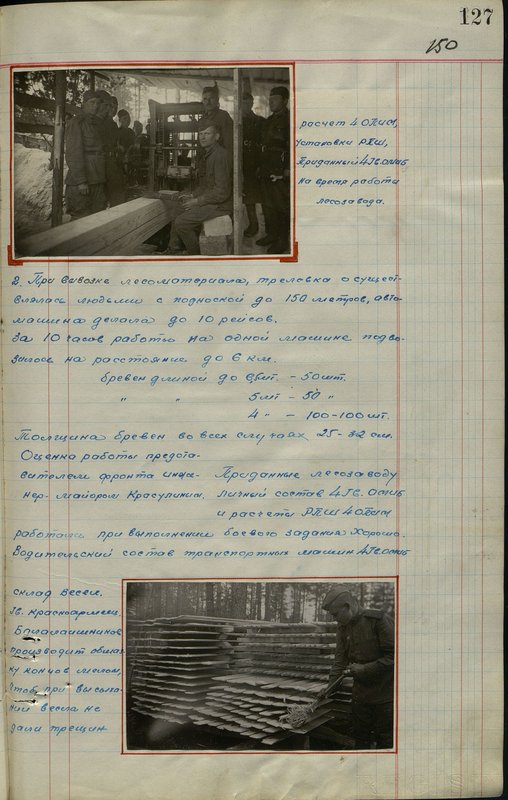 127
150
расчет 4 ОПИМ,
установки РПШ,
Приданный 4 Гв. ОМИБ
на время работы
лесозавода.
2. При вывозке лесоматериала, трелевка осущест-
влялась людьми с подноской до 150 метров, авто-
машина делала до 10 рейсов.
За 10 часов работы на одной машине подво-
зилось на расстояние до 6 км.
бревен длиной до 6,5 мт. - 50 шт.
" " 5 мт - 50 "
4 " - 100-100 шт.
Толщина бревен во всех случаях 25-32 см.
Оценка работы предста-
вителем фронта инже-
нер-майором Красулиным.
Приданные лесозаводу
личный состав 4 Гв. ОМИБ
и расчеты РПШ 4 ОПИМ
работали при выполнении боевого задания Хорошо.
Водительский состав транспортных машин 4 Гв. ОМИБ
склад весел.
Гв. Красноармеец
Балалаишников
производит обмаз-
ку концов мелом,
чтоб при высыха-
нии весла не
дали трещин